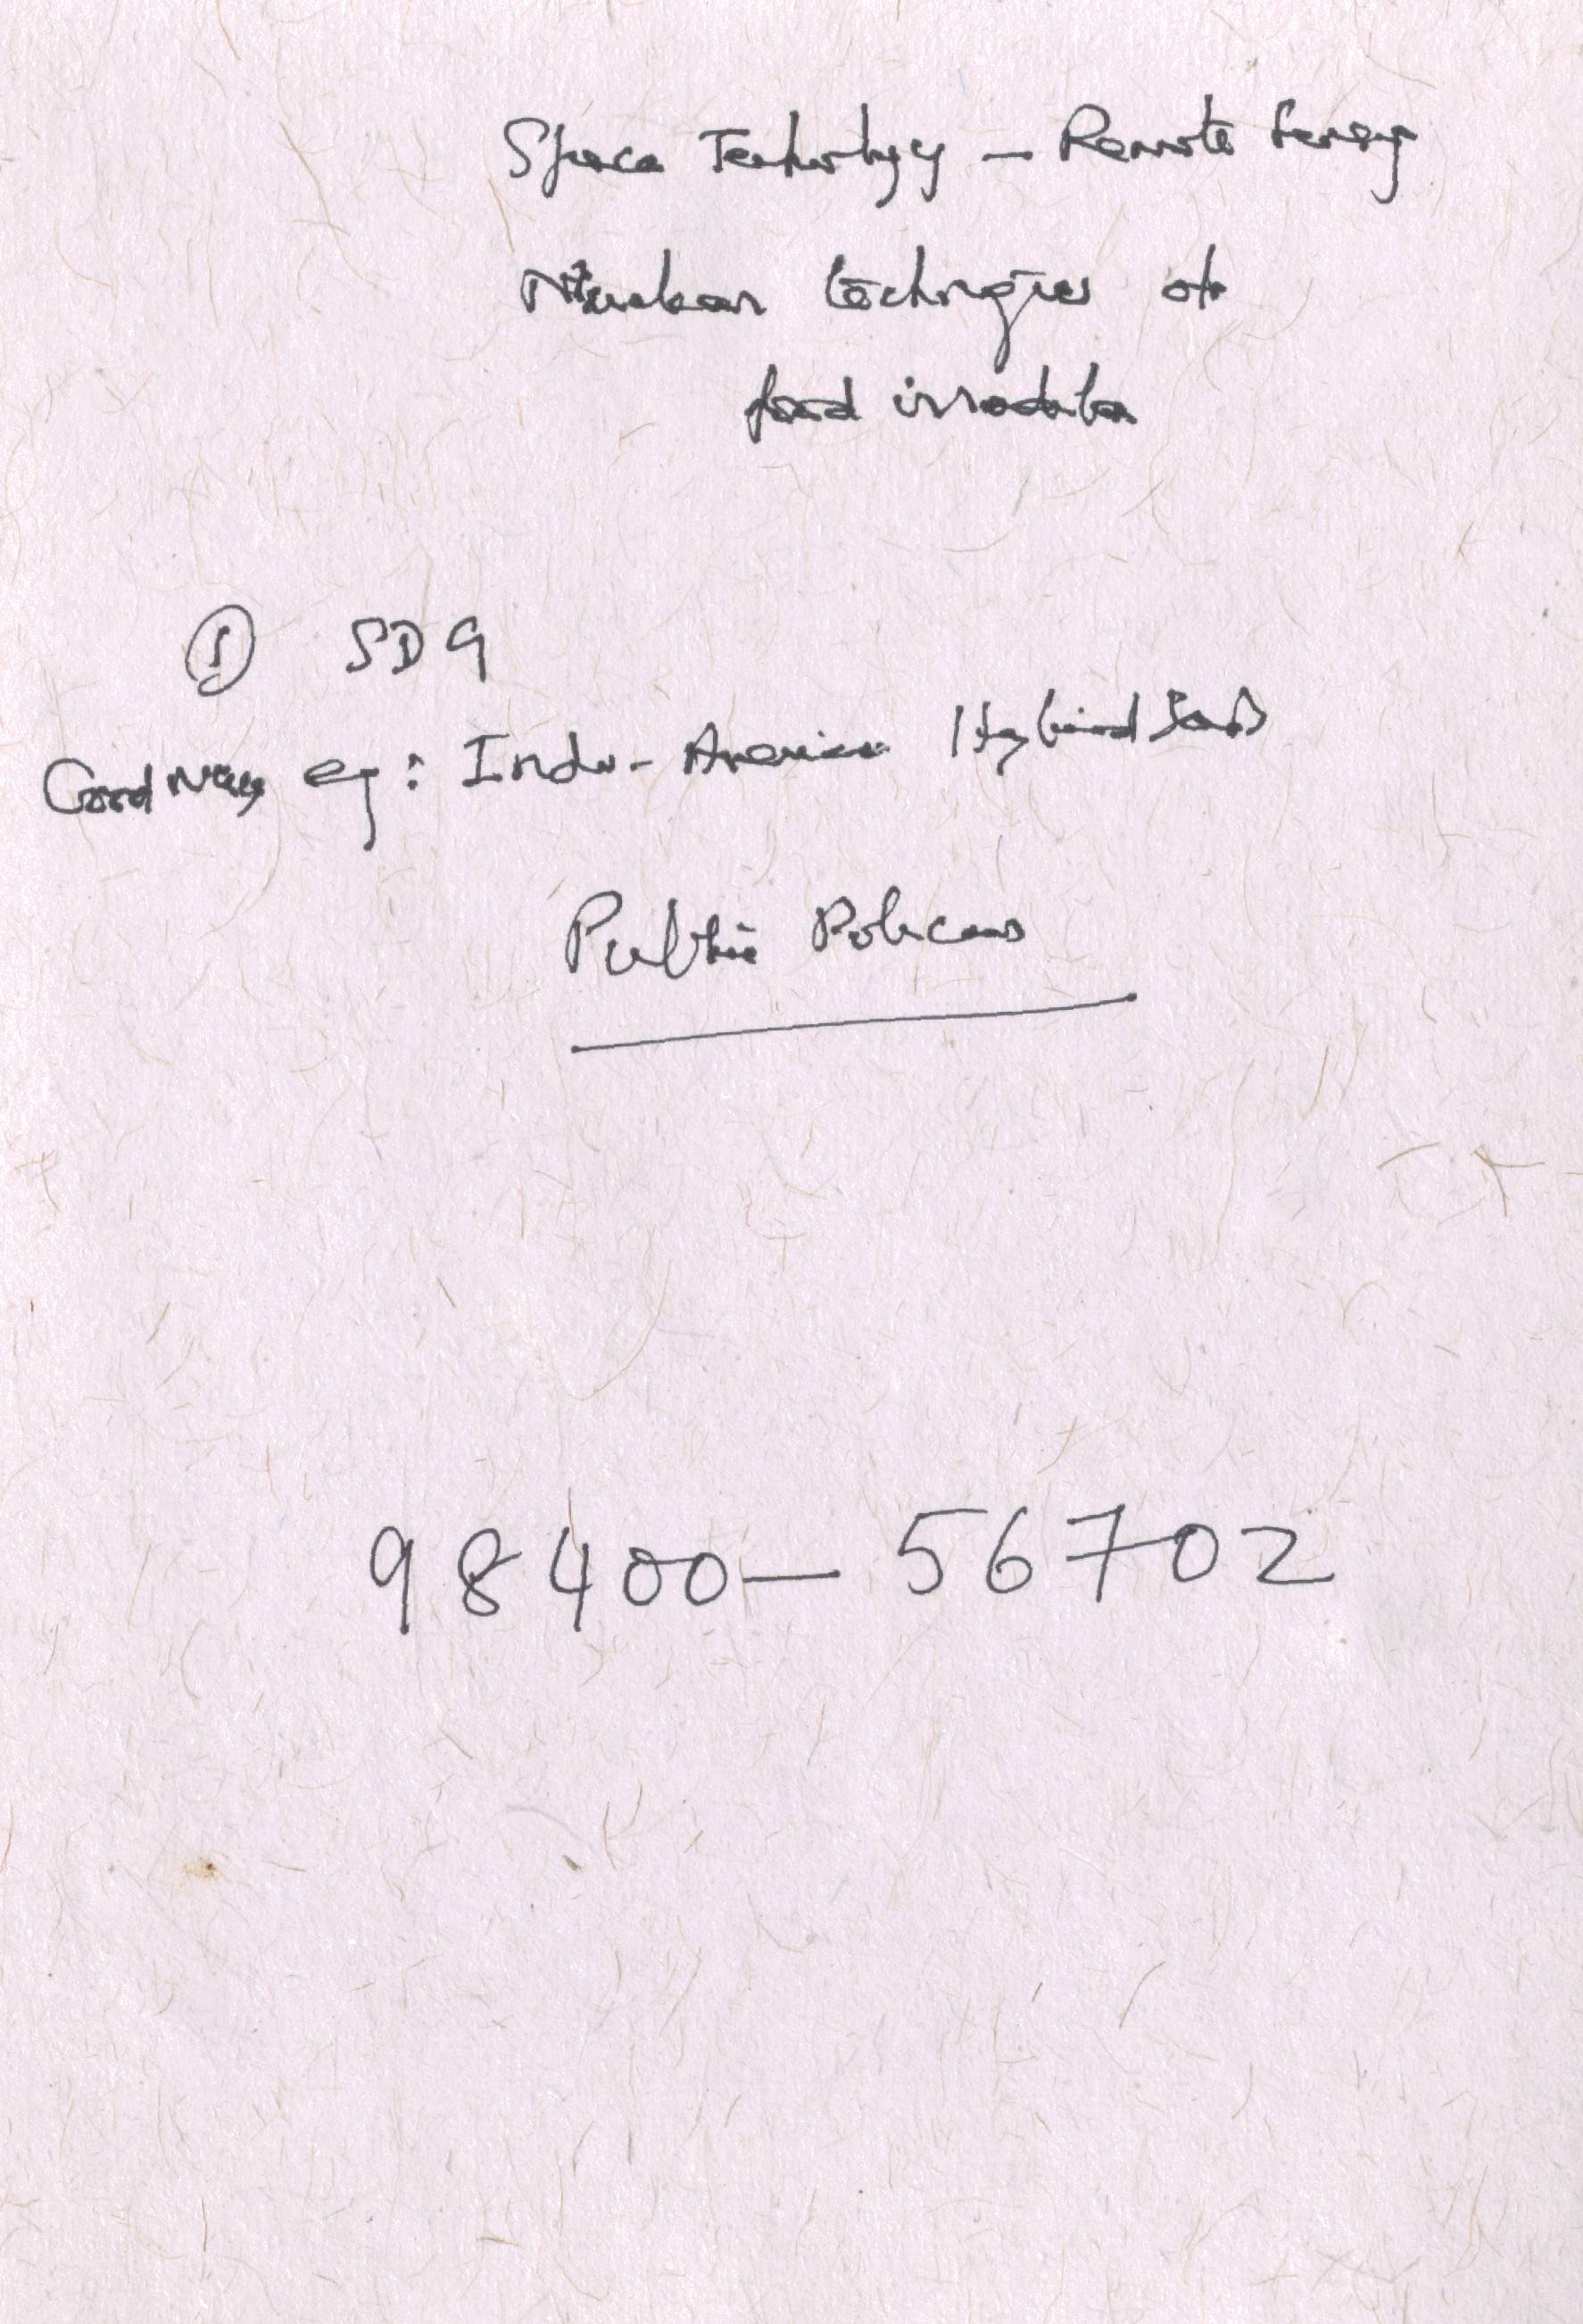 Space Technology – Remote Sensing
Nuclear techniques of
food irradiation
① SDG
Good eg: Indo-American Hybrid Seeds
Public Policies
98400 – 56702